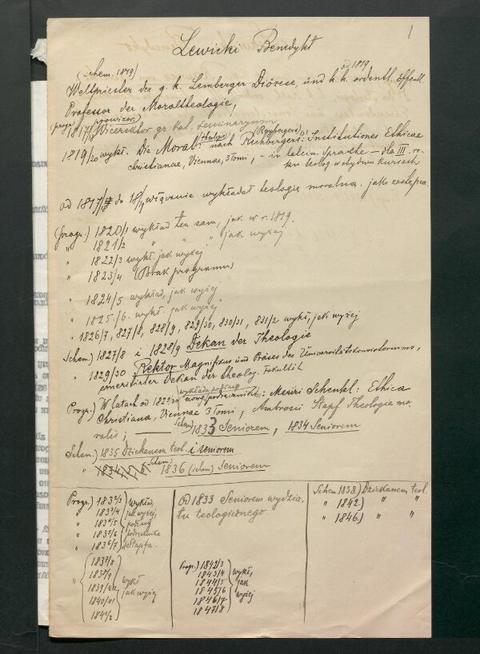 1
Lewicki Benedykt
(schem. 1819) od 1819
Weltpriester der g. k. Lemberger Diözese, und k. k. ordentl. öffentl.
Professor der Moraltheologie,
Vicerektor gr. kat. seminaryum
1819/20 wykł. Die Moral nach Rechberger: Institutiones Ethicae
christianae, Viennae, 3 tomi, - in latein Sprache - dla III. ro-
od 1817/ do 18/19 włącznie wykładał teologię moralną jako zastępca.
(progr.) 1820/1 wykład ten sam, jak w r. 1819.
" 1821/2 " " " jak wyżej
" 1822/3 wykł. jak wyżej
" 1823/4 (Brak programu)
" 1824/5 wykład, jak wyżej
" 1825/6. wykł. jak wyżej
" 1826/7, 827/8, 828/9, 829/30, 830/31, 831/2 wykł. jak wyżej
Schem.) 1827/8 i 1828/9 Dekan der Theologie
" 1829/30 Rektor Magnifikus und Präses des Universitätskonsistoriums,
emeritirter Dekan der theolog. Fakultät
Progr.) W latach od
Mauri Schenkl: Ethica
Christiana, Viennae 3 tomi, Ambrosii Stapf Theologia mo-
ralis; schem) 1833 Seniorem, 1834 Seniorem
Schem.) 1835 Dziekanem teol. i seniorem
" 1836 (schem) Seniorem
Progr.) 1832/3 wykład,
" 1833/4 jak wyżej,
" 1834/5 podług
" 1835/6 podręcznika
" 1836/7 Stapfa.
1837/8
1838/9
" 1839/40 wykł
1840/41 jak wyżej
1841/2
Od 1833 Seniorem wydzia-
łu teologicznego.
Progr.) 1842/3
1843/4 wykł,
1844/5 jak
1845/6 wyżej
1846/7
1847/8
Schem 1838) Dziekanem teol.
" 1842) " "
" 1846) " "